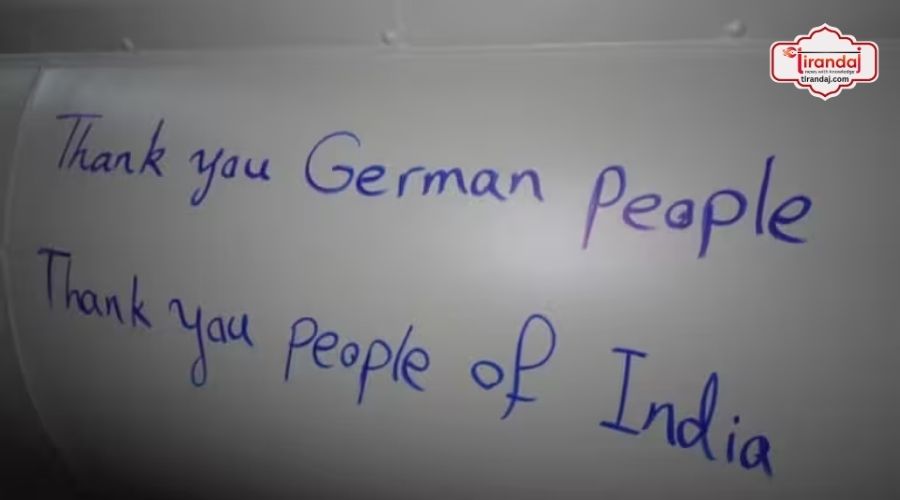 Thank you German People
Thank you people of India
tirandaj
news with knowledge
tirandaj.com